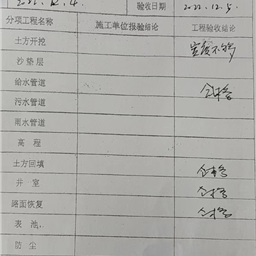 2022.12.4. 验收日期 2022.12.5.
分项工程名称 施工单位报验结论 工程验收结论
土方开挖 宽度不够
沙垫层
给水管道 合格
污水管道
雨水管道
高程
土方回填 合格
井室 合格
路面恢复 合格
表池.
防尘